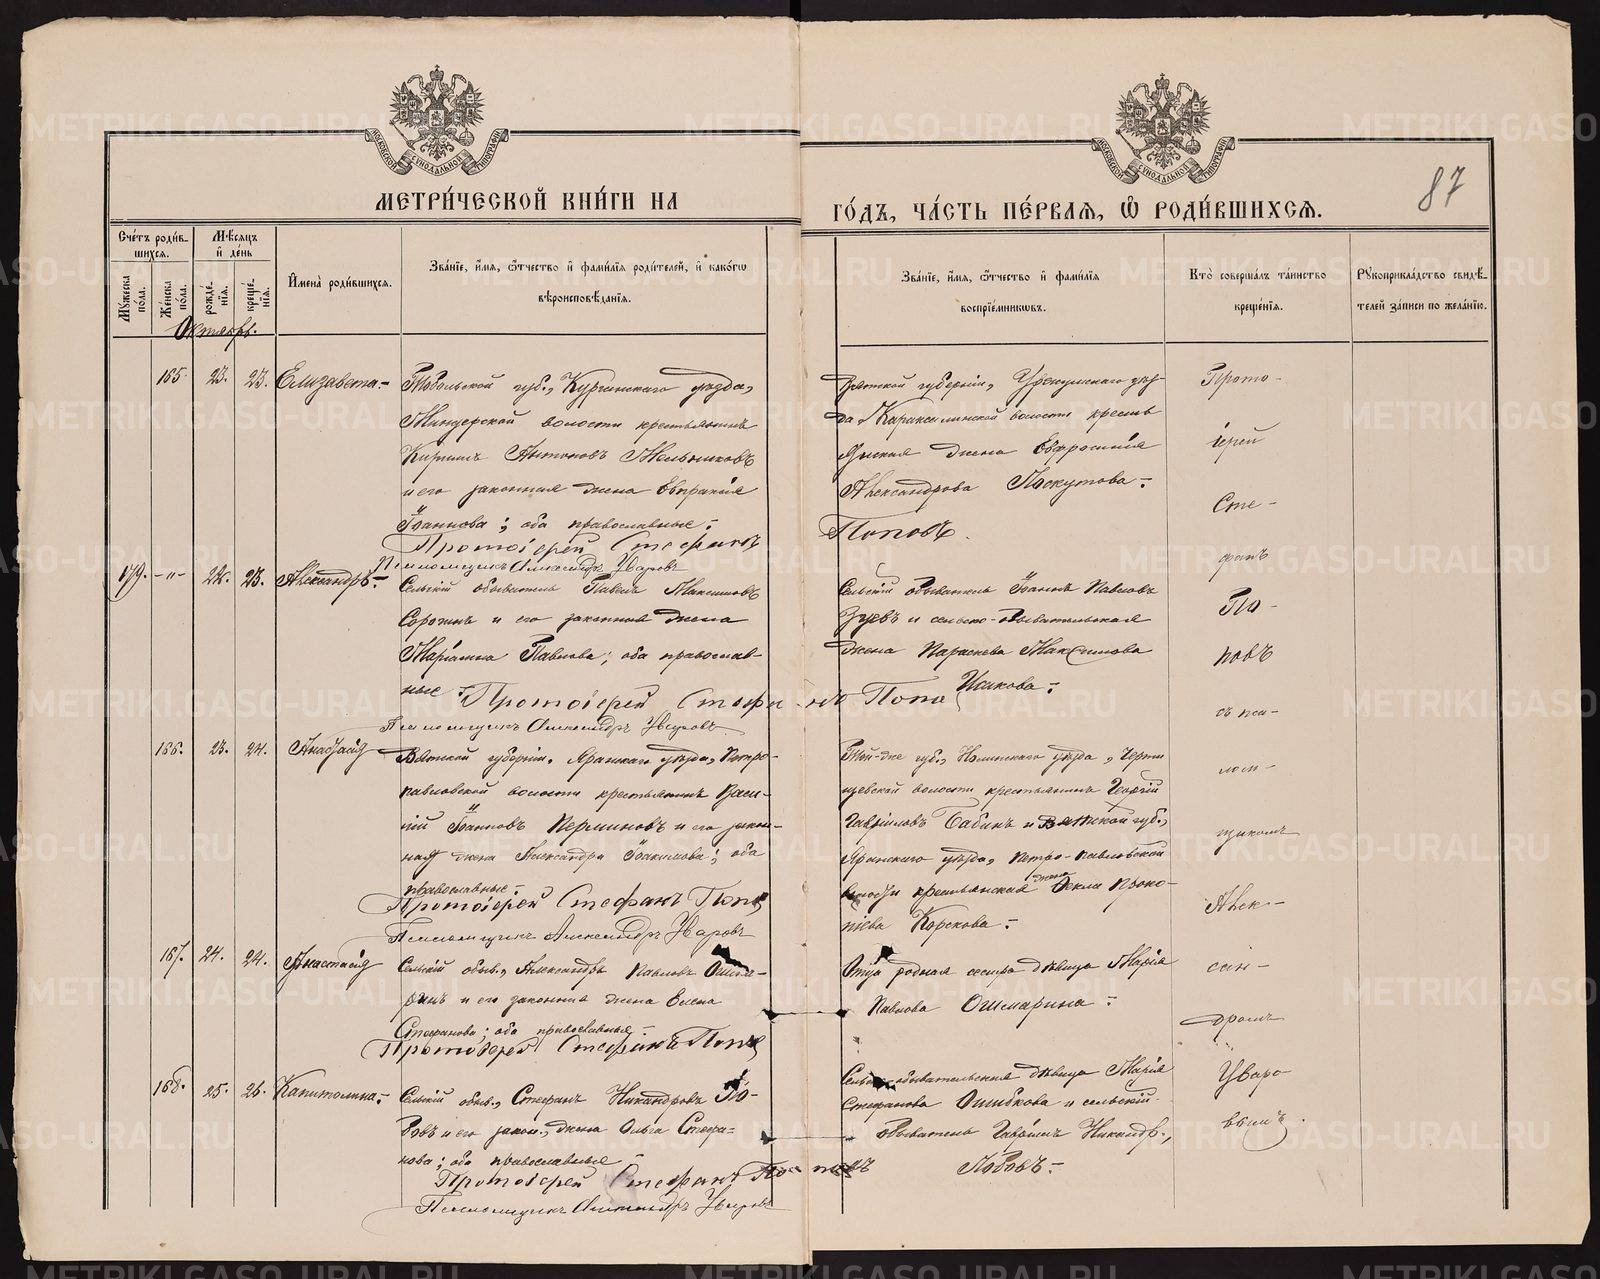 МЕТРИ́ЧЕСКОЙ КНИ́ГИ НА
ГО́ДЪ, ЧА́СТЬ ПЕ́РВАѦ, Ѡ҆ РОДИ́ВШИХСѦ.
87
Сче́тъ роди́в-
шихсѧ.
Мѣсѧцъ
и҆ де́нь
Мꙋжеска
по́ла.
Же́нска
по́ла.
рожде-
нїѧ.
креще-
нїѧ.
И҆мена̀ роди́вшихсѧ.
Зва́нїе, и҆́мѧ, ѻ҆́тчество и҆ фами́лїѧ роди́телей, и҆ како́гѡ
вѣроисповѣ́данїѧ.
Зва́нїе, и҆́мѧ, ѻ҆́тчество и҆ фами́лїѧ
воспрїе́мникѡвъ.
Кто̀ соверша́лъ та́инство
креще́нїѧ.
Рꙋкоприкла́дство свидѣ́-
телей за́писи по жела́нїю.
Октябрь.
165. 23. 23. Елизавета.-
Тобольской губ., Курганскаго уѣзда,
волости крестьянинъ
Кириллъ Антоновъ Мельниковъ
и его законная жена Евпраксія
Іоаннова; оба православные.-
Протоіерей Стефанъ
Псаломщикъ Александръ Уваровъ
Вятской губерніи, Уржумскаго уѣз-
да, волости кресть
янская жена Евфросинія
Александрова Лоскутова.-
Поповъ.
179. -"- 22. 23. Александръ.-
Сельскій обыватель Павелъ Максимовъ
Сорокинъ и его законная жена
Маріанна Павлова; оба православ-
ные.- Протоіерей Стефанъ Попо
Псаломщикъ Александръ Уваровъ
Сельскій обыватель Іоаннъ Павловъ
Зуевъ и сельско-обывательская
жена Параскева Максимова
Исакова.-
166. 23. 24. Анастасія
Вятской губерніи, Яранскаго уѣзда, Петро-
павловской волости крестьянинъ Васи-
лій Іоанновъ Перминовъ и его закон-
ная жена Александра Іоакимова; оба
православные.-
Протоіерей Стефанъ Попо
Псаломщикъ Александръ Уваровъ
Той-же губ., Нолинскаго уѣзда,
волости крестьянинъ Георгій
Гавріиловъ Бабинъ и Вятской губ.,
Яранскаго уѣзда, Петро-павловской
волости крестьянская жена Ѳекла Проко-
піева Корскова.-
167. 24. 24. Анастасія
Сельскій обыв., Александръ Павловъ Ошма-
ринъ и его законная жена Елена
Стефанова; оба православные.-
Протоіерей Стефанъ Попо
Отца родная сестра дѣвица Марія
Павлова Ошмарина.-
168. 25. 26. Капитолина.-
Сельскій обыв., Стефанъ Никандровъ Ло-
бовъ и его закон., жена Ольга Стефа-
нова; оба православные.-
Протоіерей Стефанъ Поповъ
Псаломщикъ Александръ Уваровъ
обывательская дѣвица Марія
Стефанова Ошибкова и сельскій
обыватель Гавріилъ Никандр.,
Лобовъ.-
Прото-
іерей
Сте-
фанъ
По-
повъ
съ пса-
лом-
щикомъ
Алек-
сан-
дромъ
Уваро-
вымъ.
METRIKI.GASO-URAL.RU